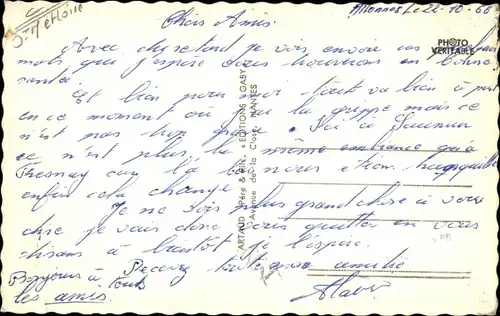 Allonnes Le 22-10-66
Chers Amis
Avec du retard je vois encore ces quelques
mots que j'espère vous trouverons en bonne
santé.
Et bien pour moi tout va bien à part
en ce moment où j'ai la grippe mais ce
n'est pas trop grave. Ici à Saumur
ce n'est plus la même ambiance qu'à
Fresnay car là bas nous étions tranquille
enfin cela change
Je ne vois plus grand chose à vous
dire je vais donc vous quitter en vous
disant à bientôt je l'espère.
Bonjour à toute amitié
à tous
les amis
PHOTO
VÉRITABLE
ARTAUD Père & Fils, « EDITIONS GABY »
Avenue de la Close, NANTES